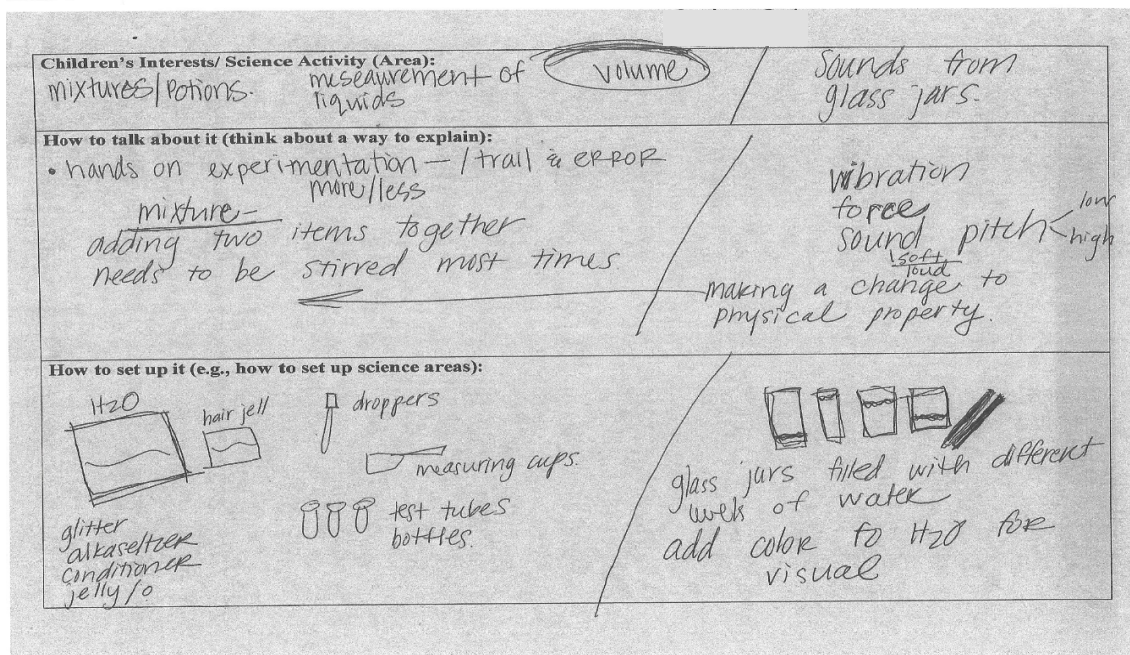 Children's Interests/ Science Activity (Area):
mixtures/Potions.
meseaurement of
liquids
volume
Sounds from
glass jars.
How to talk about it (think about a way to explain):
• hands on experimentation — / trail & ERROR
more/less
mixture -
adding two items together
needs to be stirred most times.
vibration
force
sound pitch low
high
soft
loud
making a change to
physical property.
How to set up it (e.g., how to set up science areas):
H2O
hair jell
droppers
measuring cups.
test tubes
bottles.
glitter
alkaseltzer
conditioner
jelly/o
glass jars filled with different
levels of water
add color to H2O for
visual